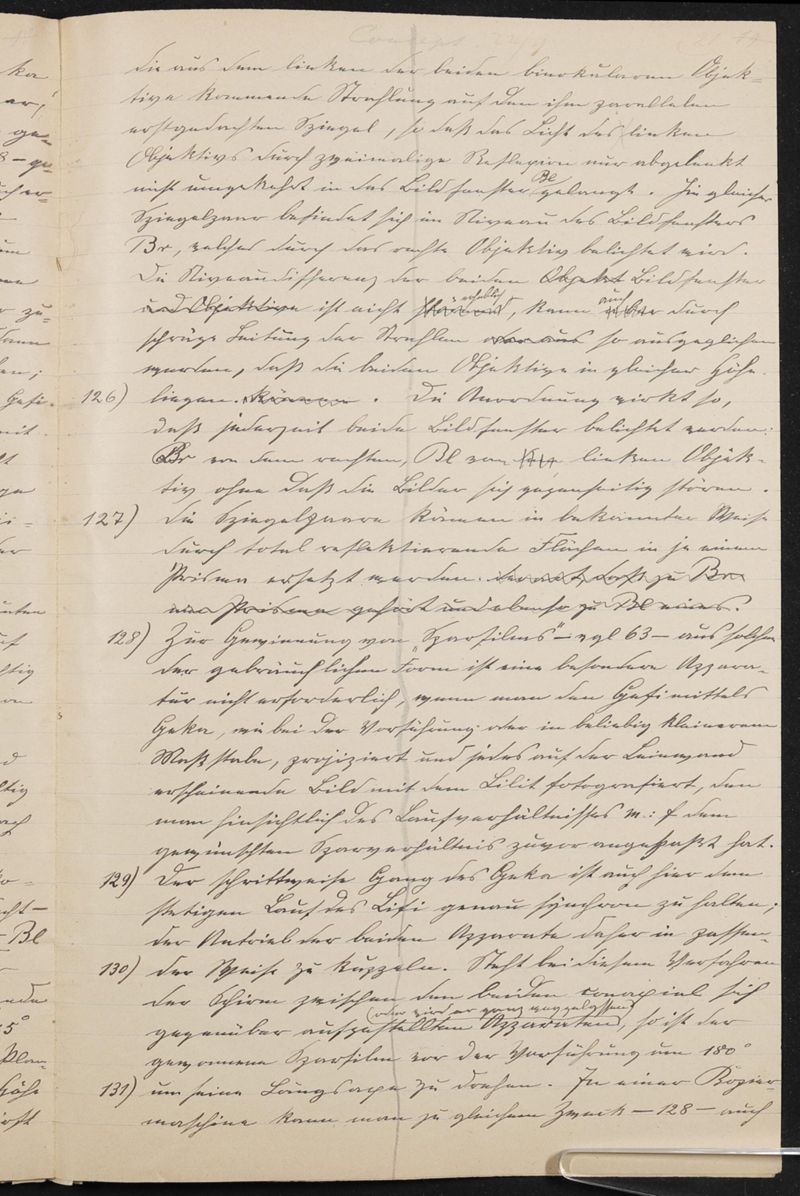 die aus dem linken der beiden binokularen Objek=
tive kommende Strahlung auf den ihm parallelen
erstgedachten Spiegel, so daß das Licht des linken
Objektivs durch zweimalige Reflexion nur abgelenkt
nicht umgekehrt in das Bildfenster Bl gelangt. Ein gleiches
Spiegelpaar befindet sich im Niveau des Bildfensters
Br, welches durch das rechte Objektiv belichtet wird.
Die Niveaudifferenz der beiden Objekt Bildfenster
und Objektive ist nicht erheblich, kann auch durch
schräge Leitung der Strahlen so ausgeglichen
werden, daß die beiden Objektive in gleicher Höhe
126) liegen. können. Die Anordnung wirkt so,
daß jederzeit beide Bildfenster belichtet werden:
Br von dem rechten, Bl vom linken Objek-
tiv ohne daß die Bilder sich gegenseitig stören.
127) Die Spiegelpaare können in bekannter Weise
durch total reflektierende Flächen in je einem
Prisma ersetzt werden. derart, daß zu Br
ein Prisma gehört und ebenso zu Bl eines.
128) Zur Gewinnung von "Sparfilms" - vgl 63 - aus solchen
der gebräuchlichen Form ist eine besondere Appara-
tur nicht erforderlich, wenn man den Gefi mittels
Geka, wie bei der Vorführung oder in beliebig kleinerem
Maßstabe, projiziert und jedes auf der Leinwand
erscheinende Bild mit dem Lilit fotografiert, den
man hinsichtlich des Laufverhältnisses m : f dem
gewünschten Sparverhältnis zuvor angepaßt hat.
129) Der schrittweise Gang des Geka ist auch hier dem
stetigen Lauf des Lifi genau synchron zu halten;
der Antrieb der beiden Apparate daher in passen-
130) der Weise zu kuppeln. Steht bei diesem Verfahren
der Schirm zwischen den beiden conaxial sich
(oder wird er ganz weggelassen)
gegenüber aufgestellten Apparaten, so ist der
gewonnene Sparfilm vor der Vorführung um 180°
131) um seine Längsaxe zu drehen. In einer Kopier-
maschine kann man zu gleichem Zweck - 128 - auch